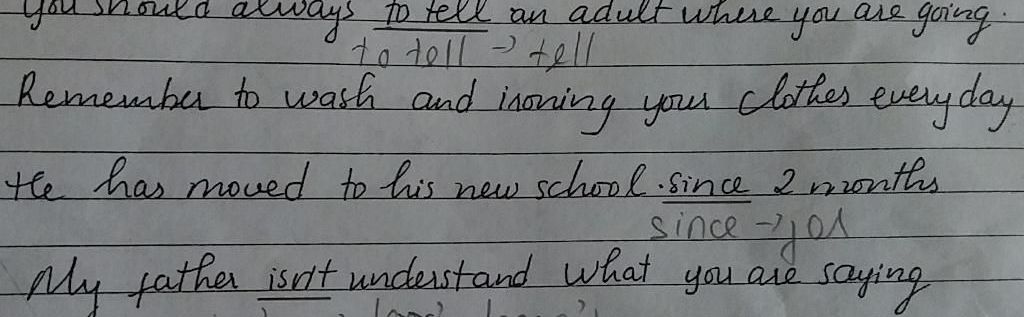 you should always to tell an adult where you are going.
to tell → tell
Remember to wash and ironing your clothes everyday
He has moved to his new school. since 2 months
since → for
My father isn't understand what you are saying